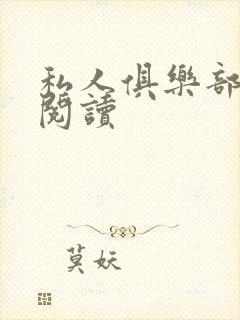 私人俱樂部
閱讀
莫妖